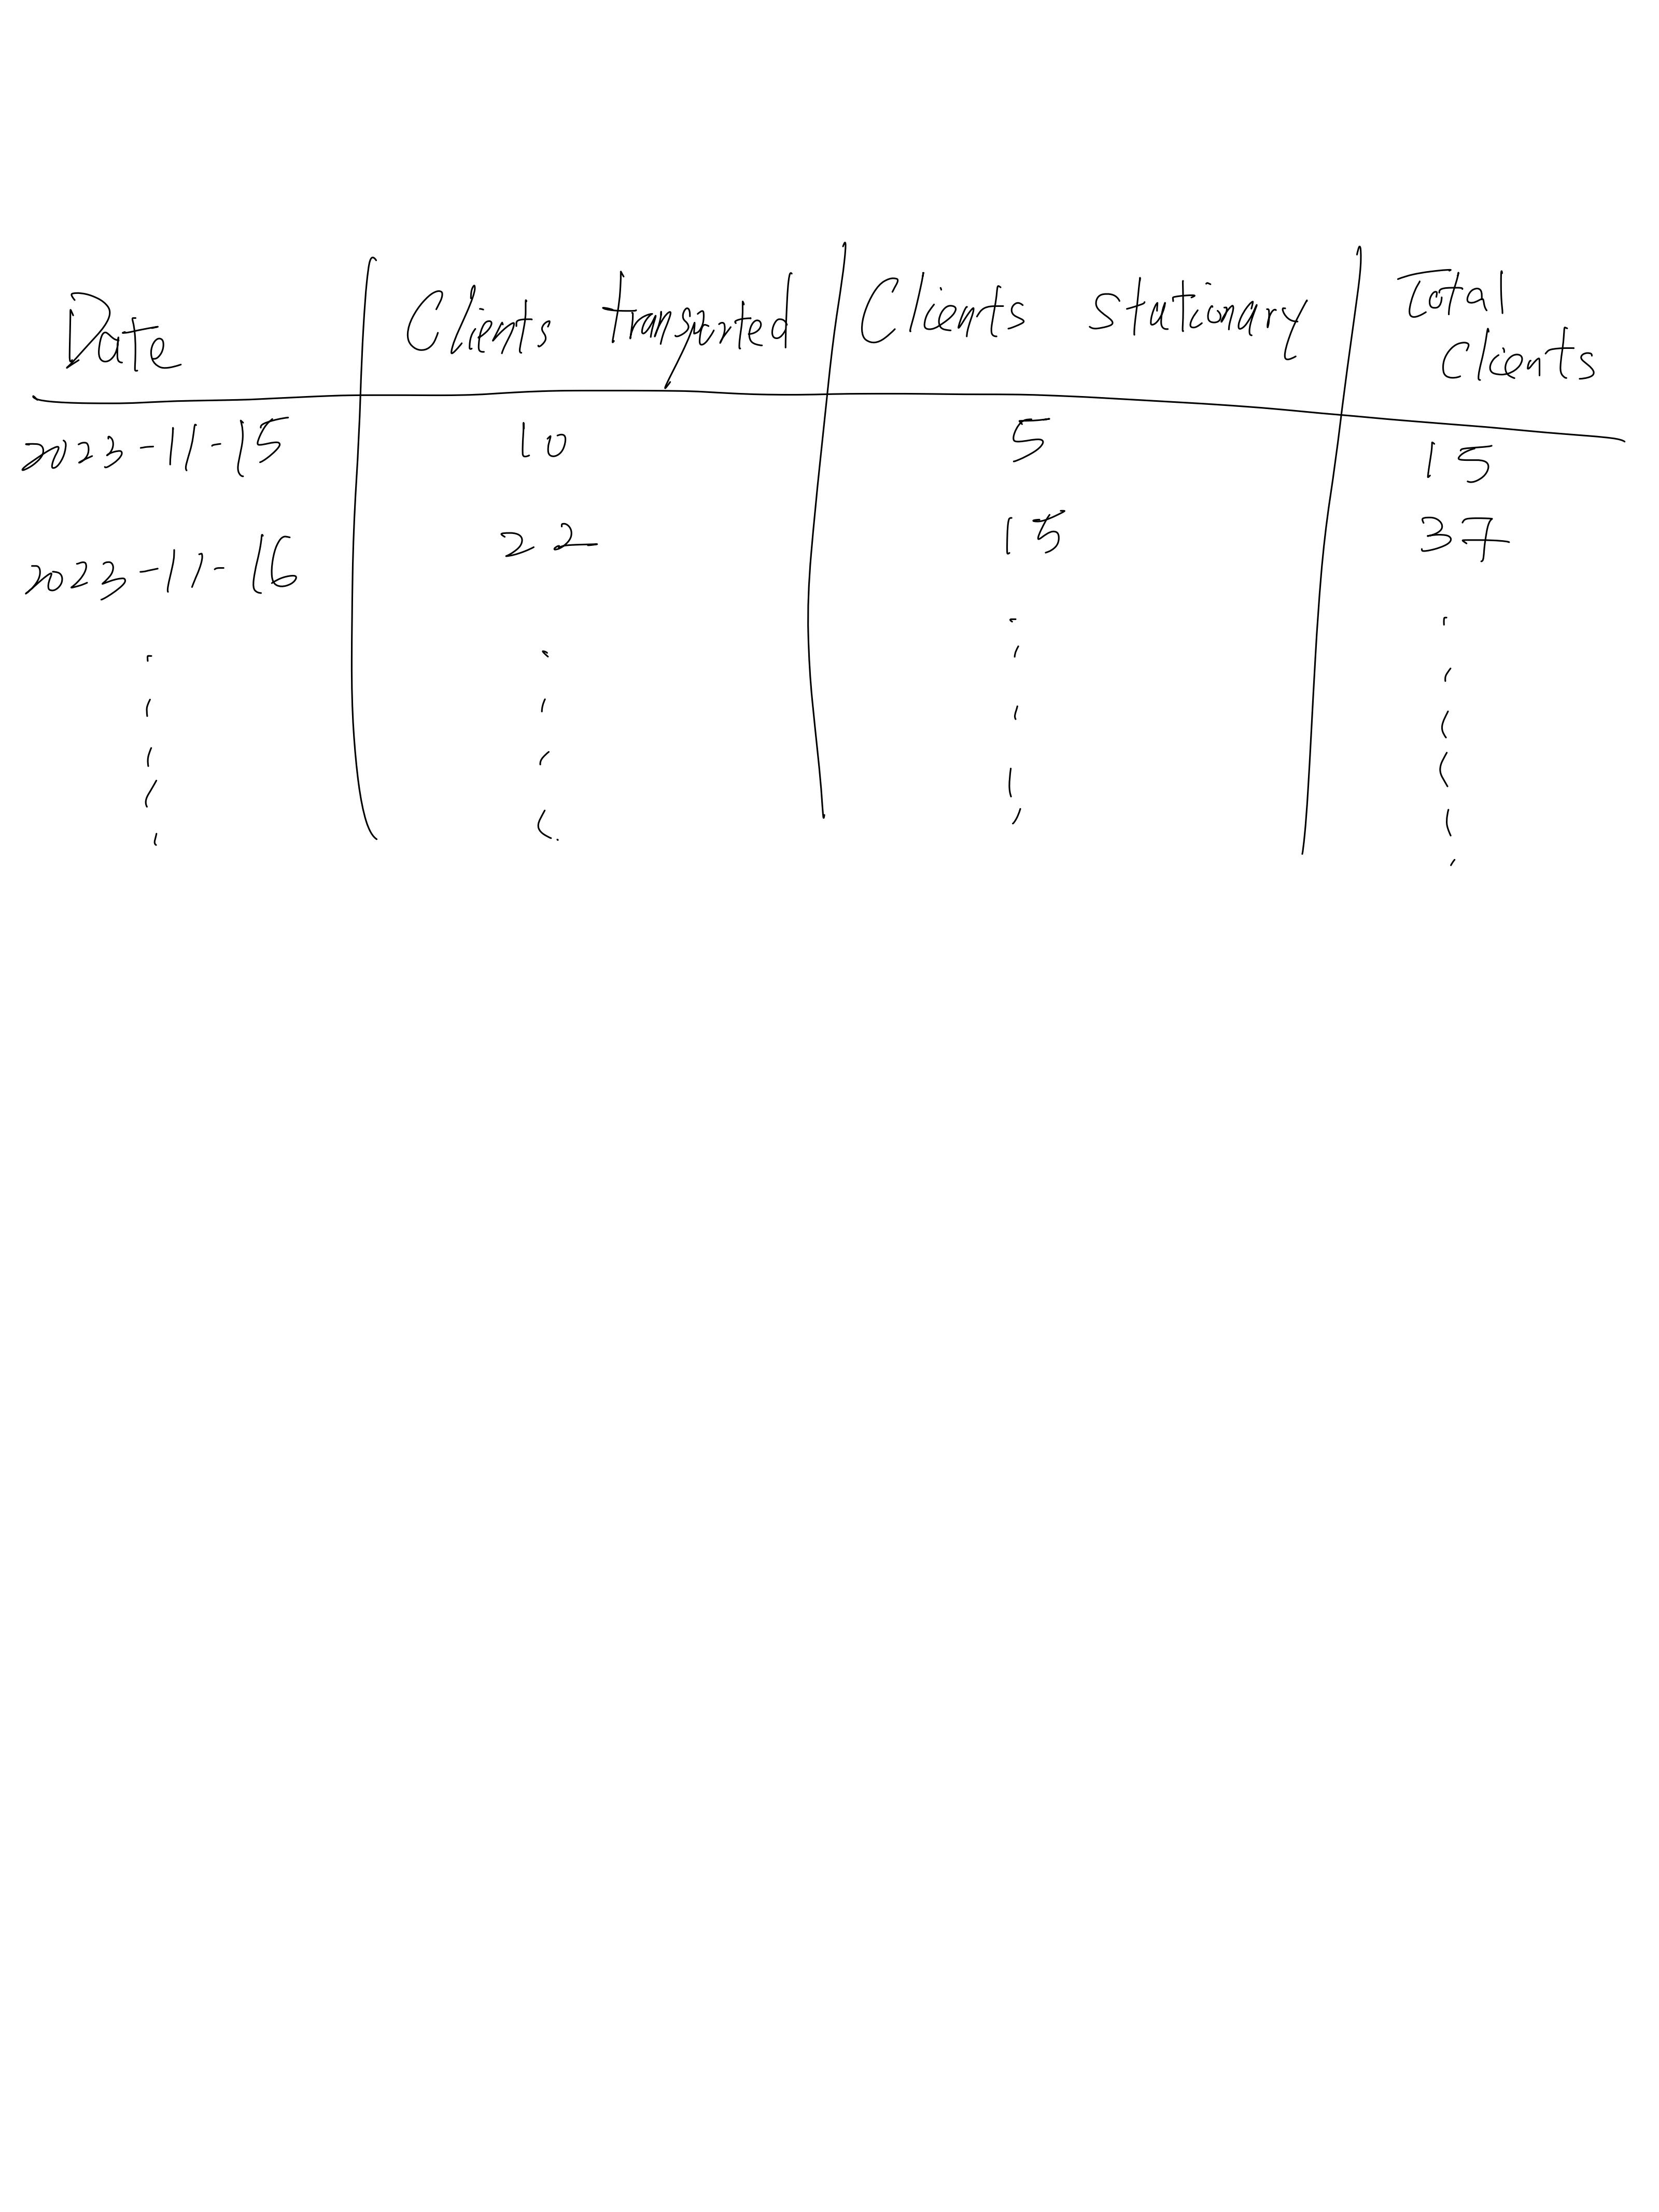 Date Clients transported Clients stationary Total Clients
2023-11-15 10 5 15
2023-11-16 22 15 37